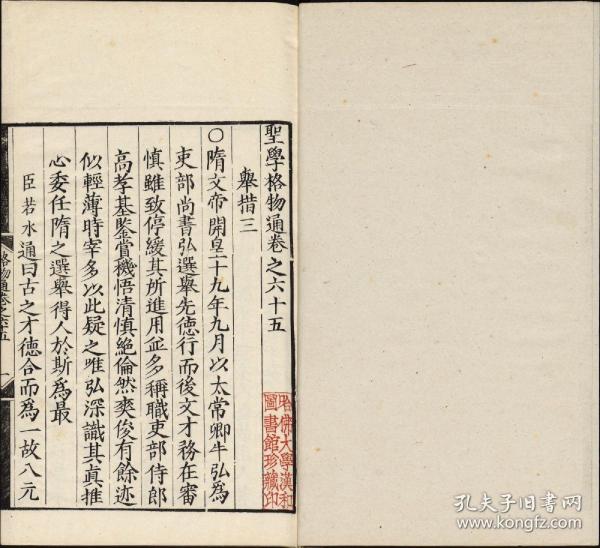 聖學格物通卷之六十五
舉措三
○隋文帝開皇十九年九月以太常卿牛弘爲
吏部尚書弘選舉先德行而後文才務在審
慎雖致停緩其所進用竝多稱職吏部侍郎
高孝基鑒賞機悟清慎絶倫然爽俊有餘迹
似輕薄時宰多以此疑之唯弘深識其眞推
心委任隋之選舉得人於斯爲最
臣若水通曰古之才德合而爲一故八元
格物通卷之六十五
一
哈佛大學漢和
圖書館珍藏印
孔夫子旧书网
www.kongfz.com